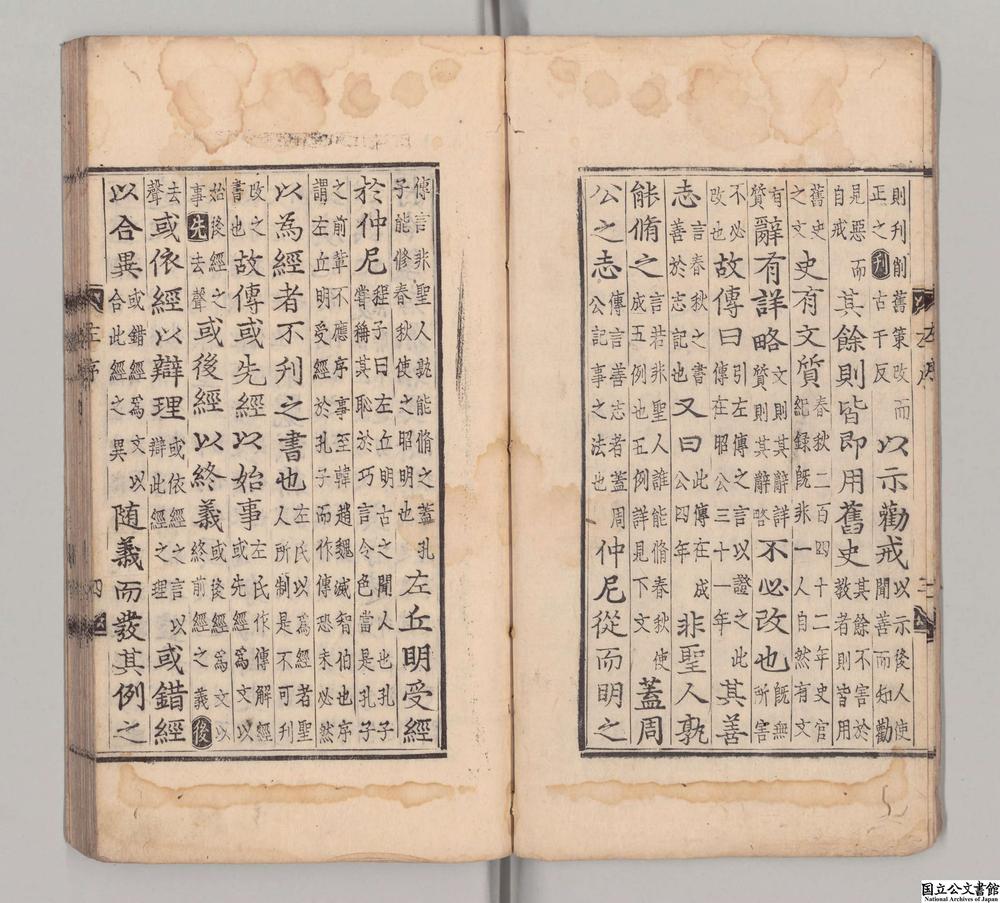 則刊削舊策改而正之刋古干反以示勸戒以示後人使聞善而知勸
見惡而自戒其餘則皆即用舊史其餘不害於教者則皆用
舊史之文史有文質春秋二百四十二年史官紀録既非一人自然有文
有質辭有詳略文則其辭詳質則其辭略不必改也既無所害
不必改也故傳曰引左傳之言以證之此傳在昭公三十一年其善
志言春秋之書善於志記也又曰此傳在成公四年非聖人孰
能脩之言若非聖人誰能脩春秋使成五例也五例詳見下文蓋周
公之志傳言善志者蓋周公記事之法也仲尼從而明之
傳言非聖人孰能脩之蓋孔子能修春秋使之昭明也左丘明受經
於仲尼程子曰左丘明古之聞人也孔子嘗稱其恥於巧言令色當是孔子
之前輩不應序事至韓趙魏滅智伯也序謂左丘明受經於孔子而作傳恐未必然
以為經者不刊之書也左氏以爲經者聖人所制是不可刊
改之書也故傳或先經以始事左氏作傳解經或先經爲文以
始後經之事先去聲或後經以終義或後經爲文以終前經之義後
去聲或依經以辯理或依經之言以辯此經之理或錯經
以合異或錯經爲文以合此經之異隨義而發其例之
国立公文書館
National Archives of Japan